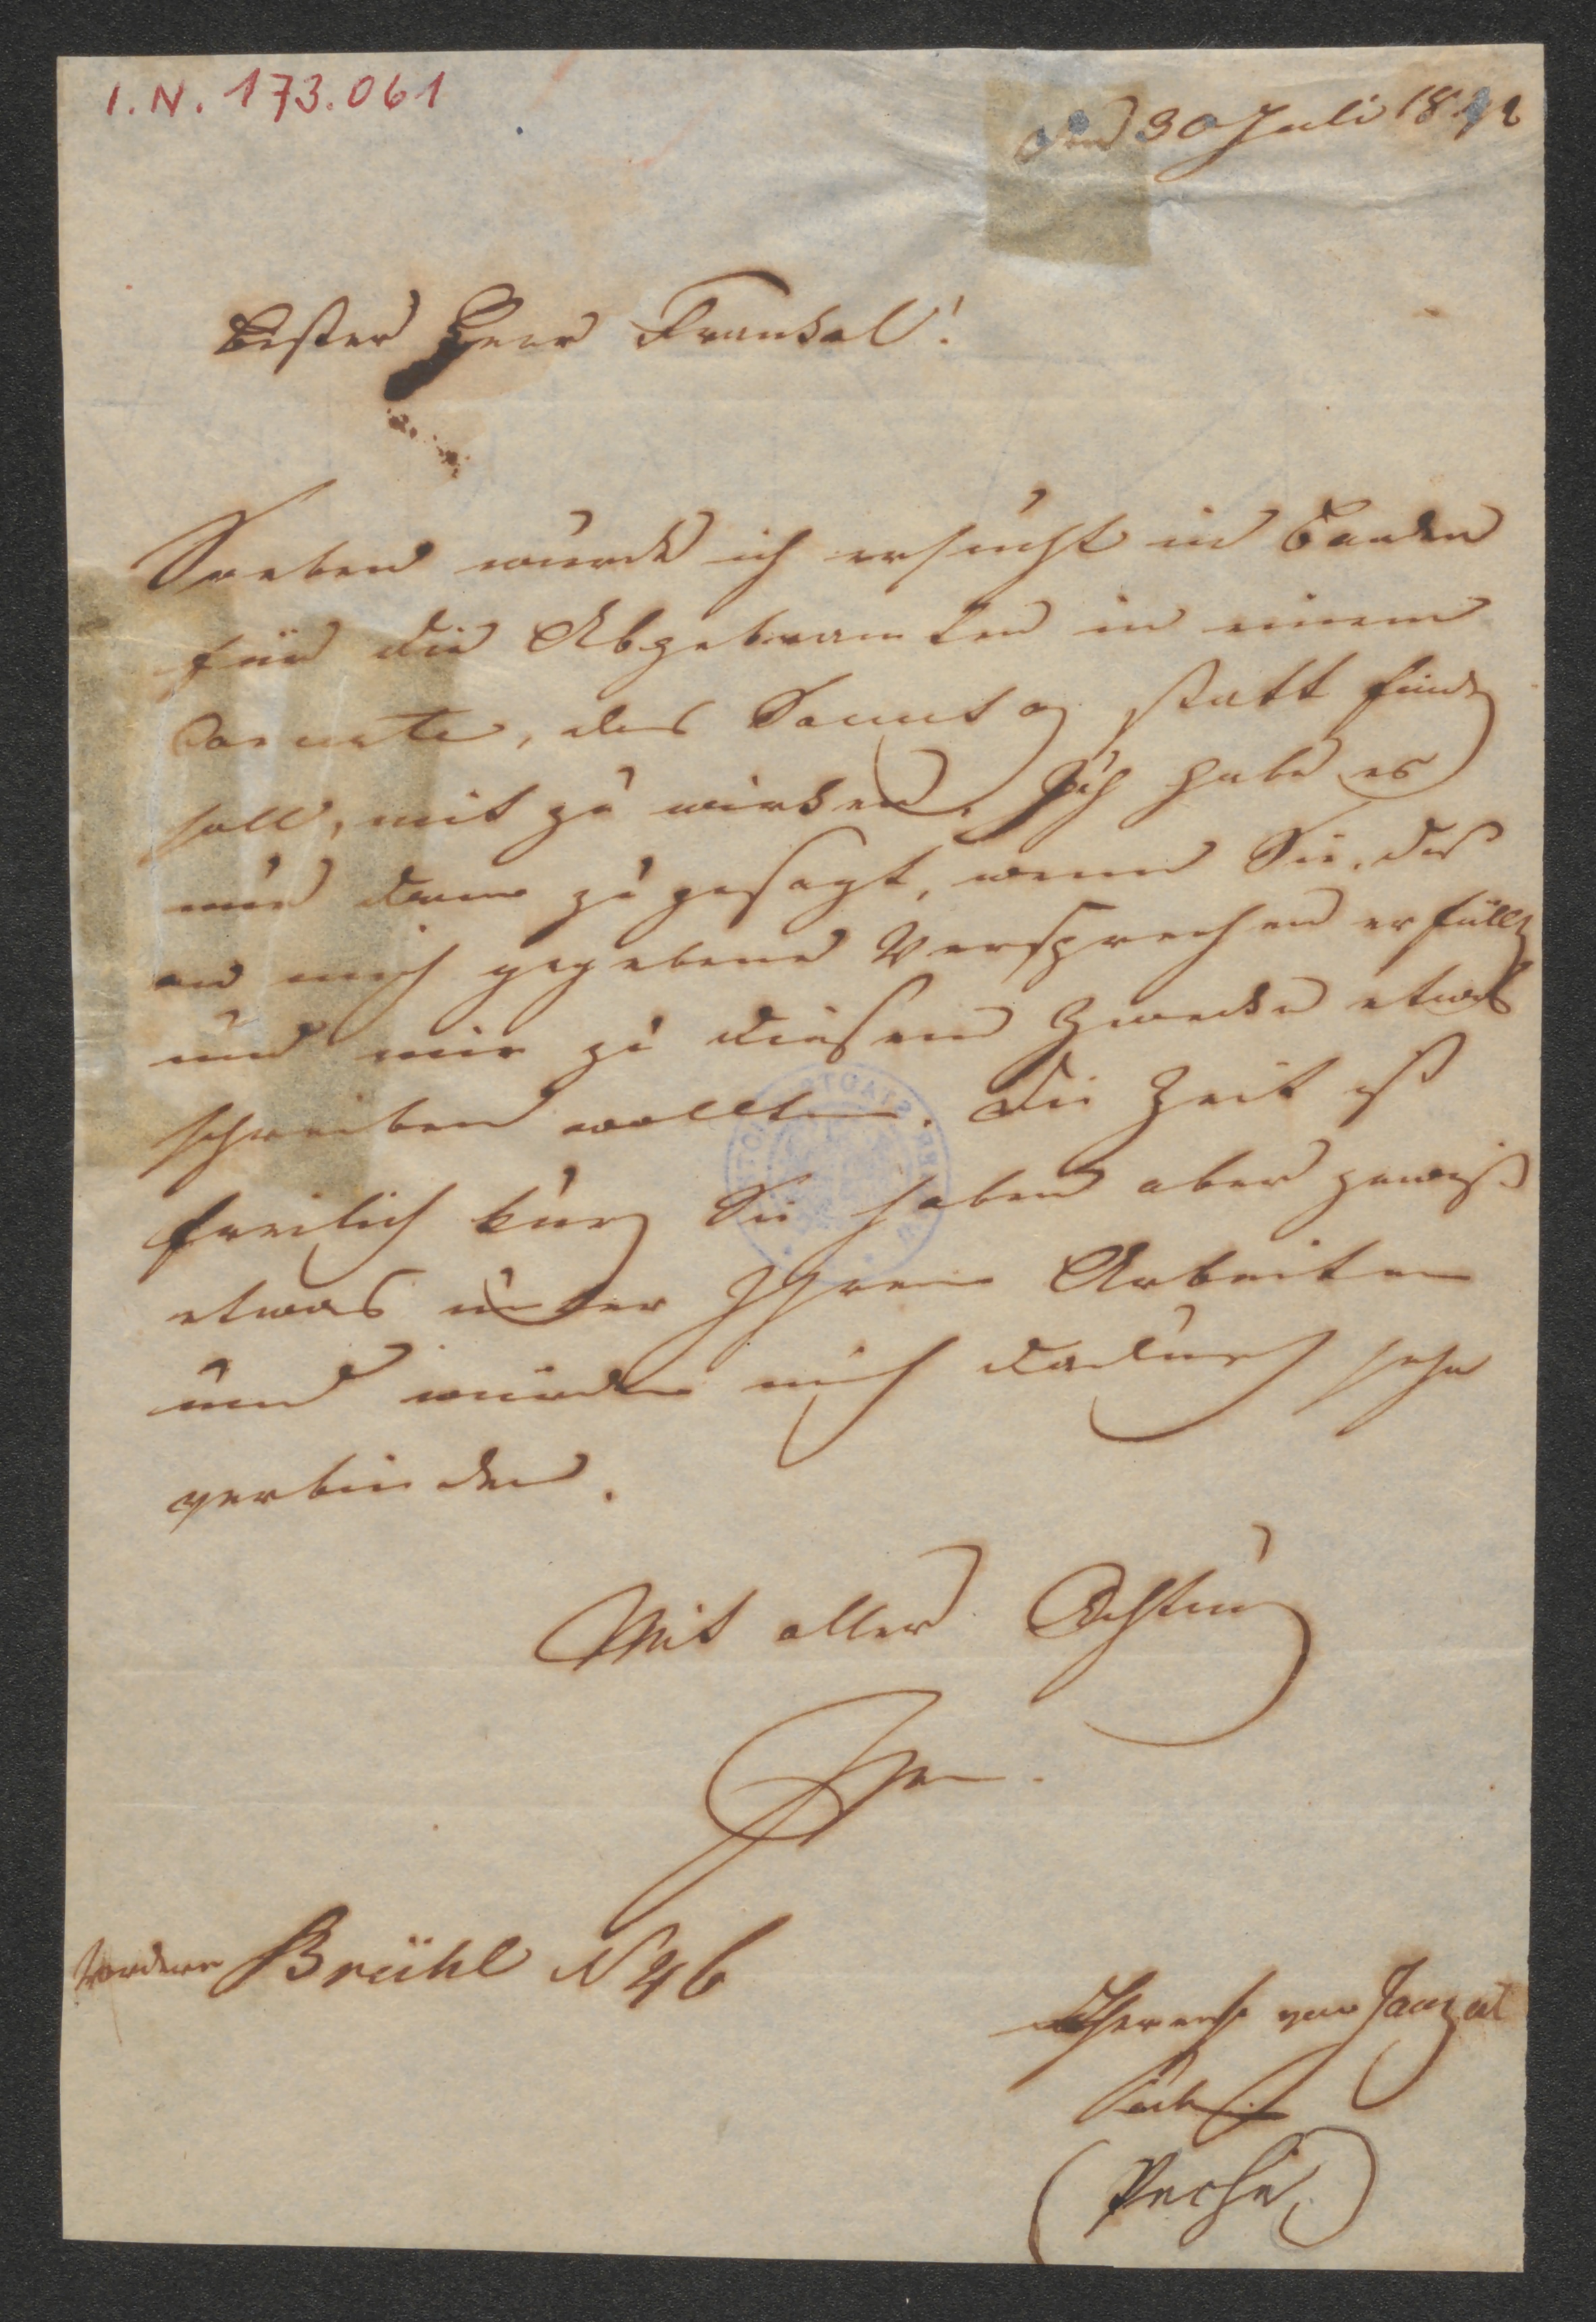 I.N. 173.061
den 30 Juli 1842
Bester Herr Frankel!
Soeben wurde ich ersucht in Baaden
für die Abgebrannten in einem
Concerte, das Sonntag statt finden
soll, mit zu wirken. Ich habe es
nur dann zu gesagt, wenn Sie, das
an mich gegebene Versprechen erfüllen
und mir zu diesem Zwecke etwas
schreiben wollten. Die Zeit ist
freilich kurz Sie haben aber gewiß
etwas unter Ihren Arbeiten
und würden mich dadurch sehr
verbinden.
Mit aller Achtung
Ihre
Vordere Brühl N 46
Therese von
(Peche)